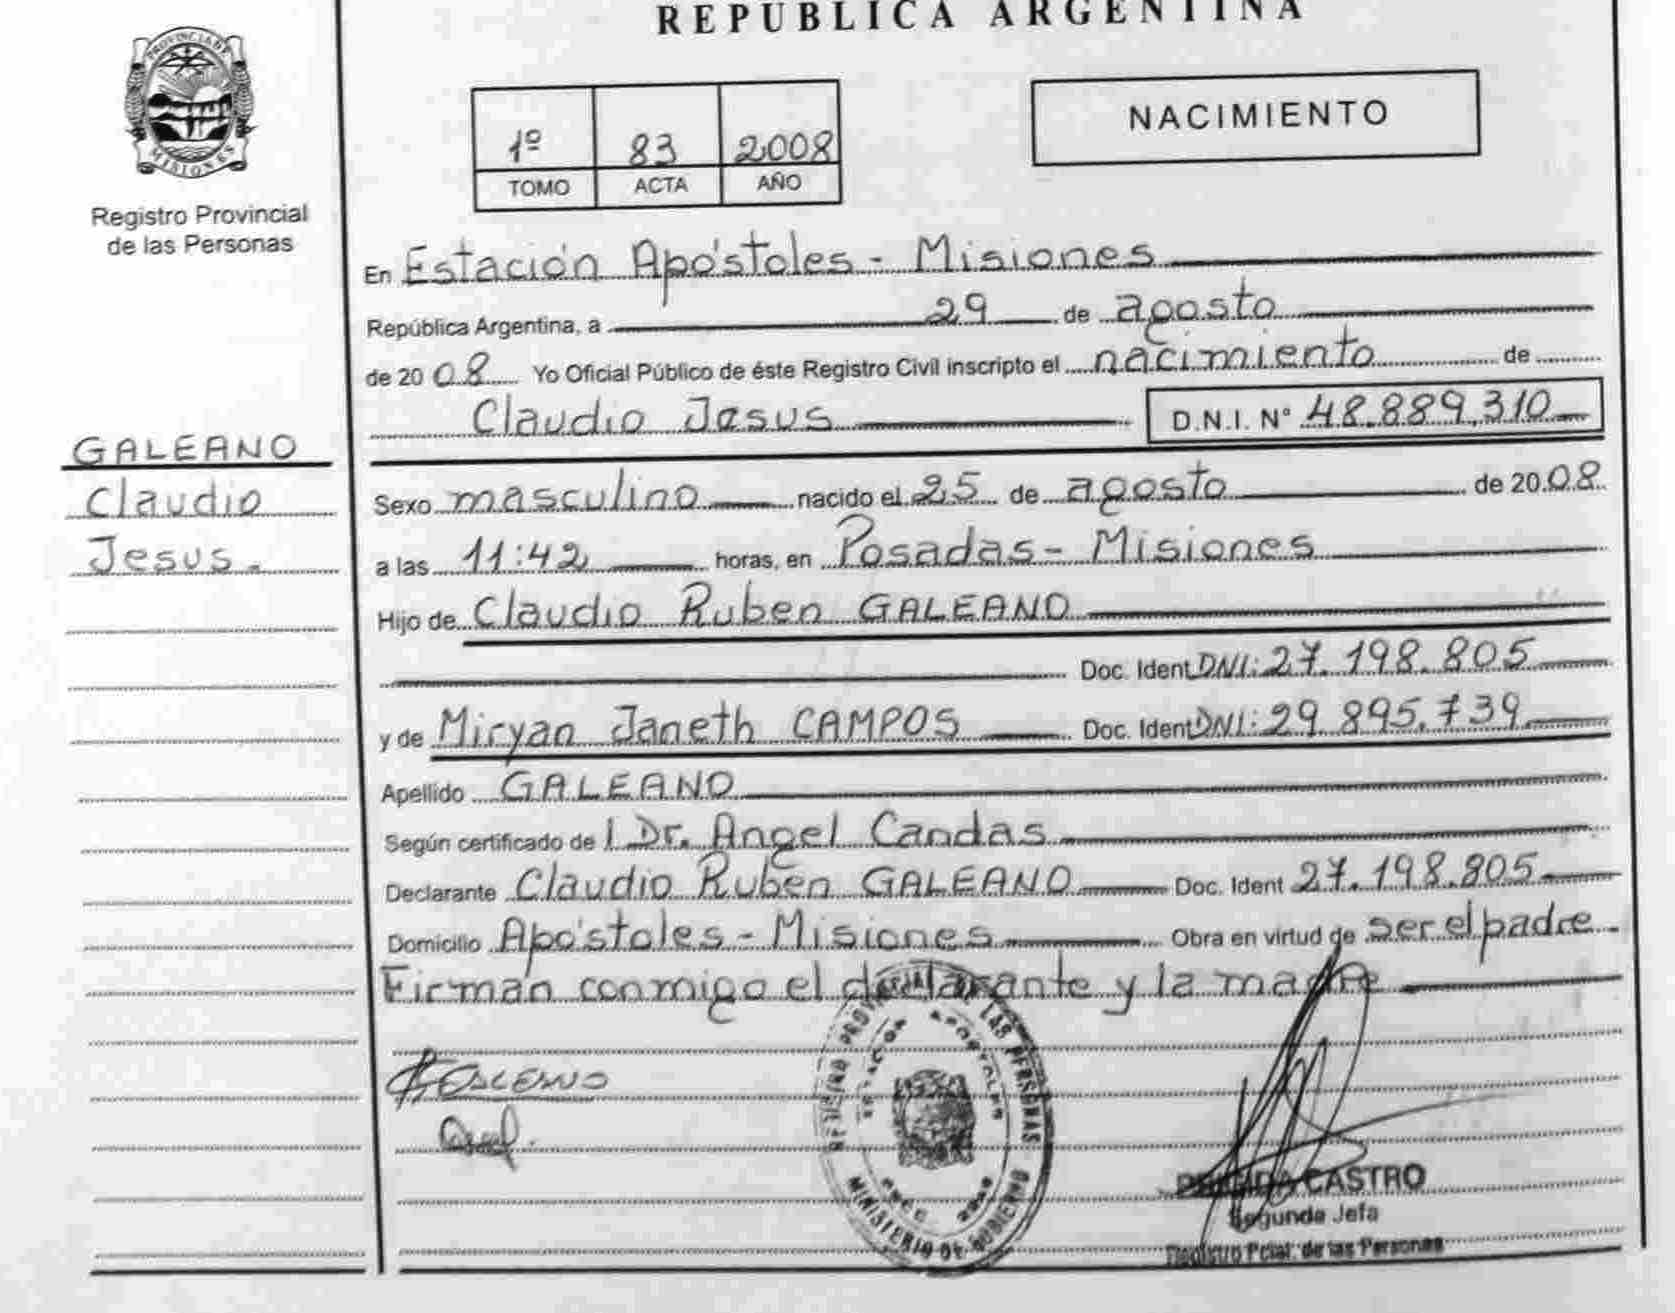 REPUBLICA ARGENTINA
PROVINCIA DE
MISIONES
Registro Provincial
de las Personas
1º 83 2008
TOMO ACTA AÑO
NACIMIENTO
En Estación Apóstoles - Misiones
República Argentina, a 29 de agosto
de 2008 Yo Oficial Público de éste Registro Civil inscripto el nacimiento de
Claudio Jesus D.N.I. N° 48.889.310
GALEANO
Claudio
Jesus.
Sexo masculino nacido el 25 de agosto de 2008
a las 11:42 horas, en Posadas - Misiones
Hijo de Claudio Ruben GALEANO
Doc. Ident DNI: 27.198.805
y de Miryan Janeth CAMPOS Doc. Ident DNI: 29.895.739
Apellido GALEANO
Según certificado de l Dr. Angel Candas
Declarante Claudio Ruben GALEANO Doc. Ident 27.198.805
Domicilio Apóstoles - Misiones Obra en virtud de ser el padre.
Firman conmigo el declarante y la madre
GALEANO
LAS PERSONAS
APOSTOLES
MINISTERIO DE GOBIERNO
CASTRO
Segunda Jefa
Registro Pcial. de las Personas